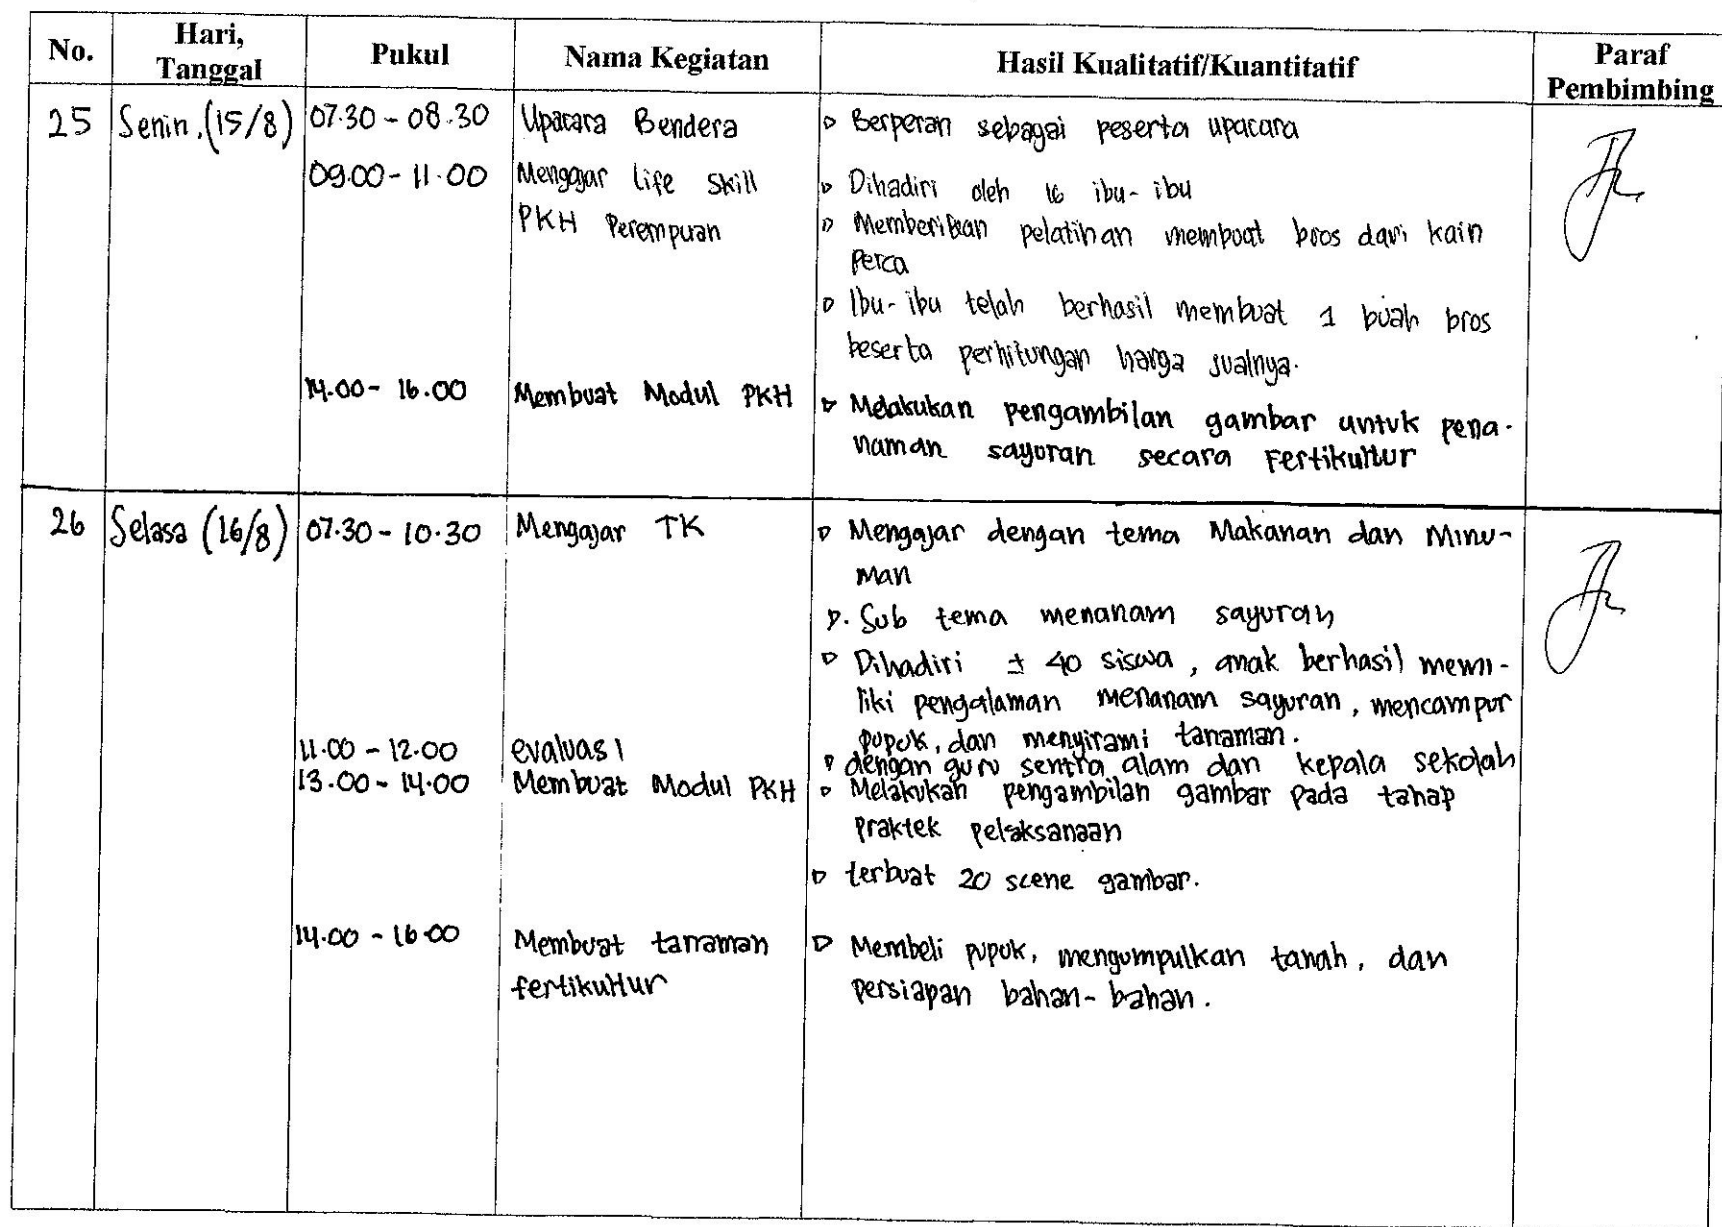 No. Hari, Tanggal Pukul Nama Kegiatan Hasil Kualitatif/Kuantitatif Paraf Pembimbing
25 Senin, (15/8) 07.30 - 08.30 Upacara Bendera ▹ Berperan sebagai peserta upacara
09.00 - 11.00 Mengajar life skill ▹ Dihadiri oleh 16 ibu-ibu
PKH Perempuan ▹ Memberikan pelatihan membuat bros dari kain
perca
▹ Ibu-ibu telah berhasil membuat 1 buah bros
beserta perhitungan harga jualnya.
14.00 - 16.00 Membuat Modul PKH ▹ Melakukan pengambilan gambar untuk pena-
naman sayuran secara Fertikultur
26 Selasa (16/8) 07.30 - 10.30 Mengajar TK ▹ Mengajar dengan tema Makanan dan Minu-
man
▹. Sub tema menanam sayuran
▹ Dihadiri ± 40 siswa, anak berhasil memi-
liki pengalaman menanam sayuran, mencampur
pupuk, dan menyirami tanaman.
11.00 - 12.00 evaluasi ▹ dengan guru sentra alam dan kepala sekolah
13.00 - 14.00 Membuat Modul PKH ▹ Melakukan pengambilan gambar pada tahap
praktek pelaksanaan
▹ terbuat 20 scene gambar.
14.00 - 16.00 Membuat tanaman ▹ Membeli pupuk, mengumpulkan tanah, dan
fertikultur persiapan bahan-bahan.